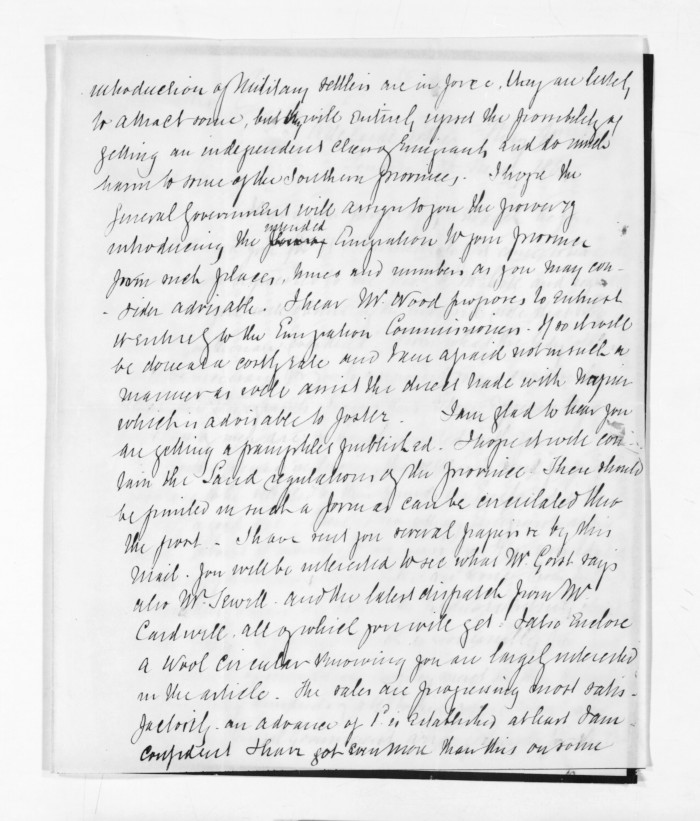 introduction of Military settlers are in force, they are likely
to attract some, but they will entirely upset the possibility of
getting an independent class of Emigrants and do much
harm to some of the Southern provinces. I hope the
General Government will assign to you the power of
introducing the intended Emigration to your province
from such places, times and numbers as you may con-
-sider advisable. I hear Mr. Wood proposes to entrust
it entirely to the Emigration Commissioners. If so it will
be done at a costly rate and I am afraid not in such a
manner as will assist the direct trade with Napier
which is advisable to foster. I am glad to hear you
are getting a pamphlet published. I hope it will con-
tain the Land regulations of the province. These should
be printed in such a form as can be circulated thro
the post. - I have sent you several papers &c by this
Mail. You will be interested to see what Mr. Gorst says
also Mr. Sewell. and the latest dispatch from Mr
Cardwell. all of which you will get. I also Enclose
a Wool Circular knowing you are largely interested
in the article. The sales are progressing most satis-
factorily - an advance of 1d is established at least I am
confident I have got even more than this on some